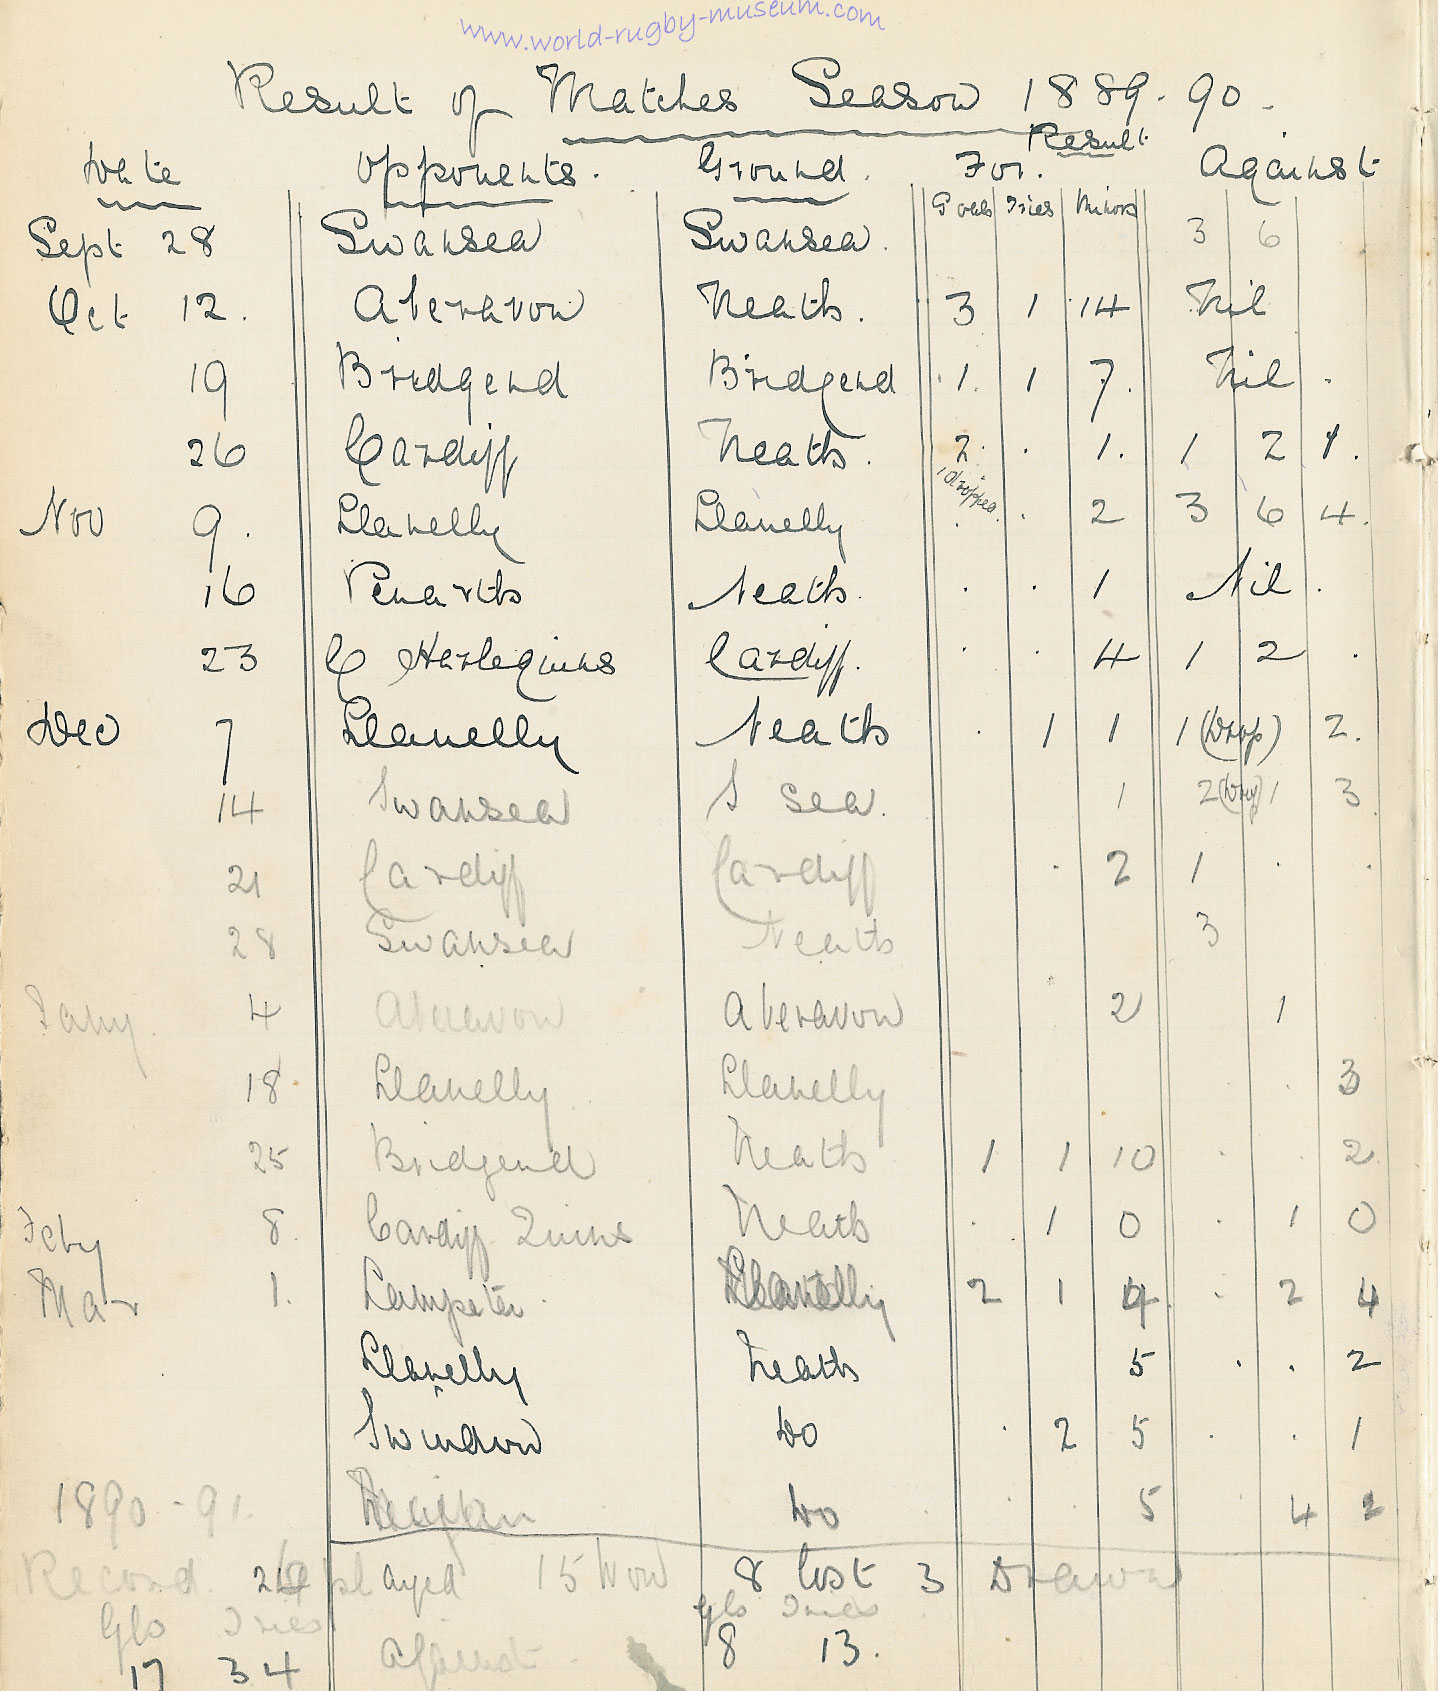 www.world-rugby-museum.com
Result of Matches Season 1889-90-
Result
Date Opponents. Ground. For. Against
Goals Tries Minors
Sept 28 Swansea Swansea. 3 6
Oct 12. Aberavon Neath. 3 1 14 Nil
19 Bridgend Bridgend 1. 1 7. Nil.
26 Cardiff Neath. 2. . 1. 1 2 1.
1 dropped
Nov 9. Llanelly Llanelly . . 2 3 6 4.
16 Penarth Neath. . . 1 Nil.
23 C Harlequins Cardiff. . . 4 1 2 .
Dec 7 Llanelly Neath . 1 1 1 (Drop) 2.
14 Swansea S sea. 1 2 1 3.
21 Cardiff Cardiff . 2 1 . .
28 Swansea Neath 3
Jany. 4 Aberavon Aberavon 2 1
18. Llanelly. Llanelly . 3
25 Bridgend Neath 1 1 10 . . 2.
Feby 8. Cardiff Quins Neath . 1 0 . 1 0
Mar 1. Lampeter. 2 1 . 2 4
Llanelly Neath 5 . . 2
Swindon Do . 2 5 . . 1
Do . . 5 . 4
1890-91.
Record. played 15 Won 8 lost 3 Drawn
Gls Tries Gls Tries
17 34 Against. 8 13.